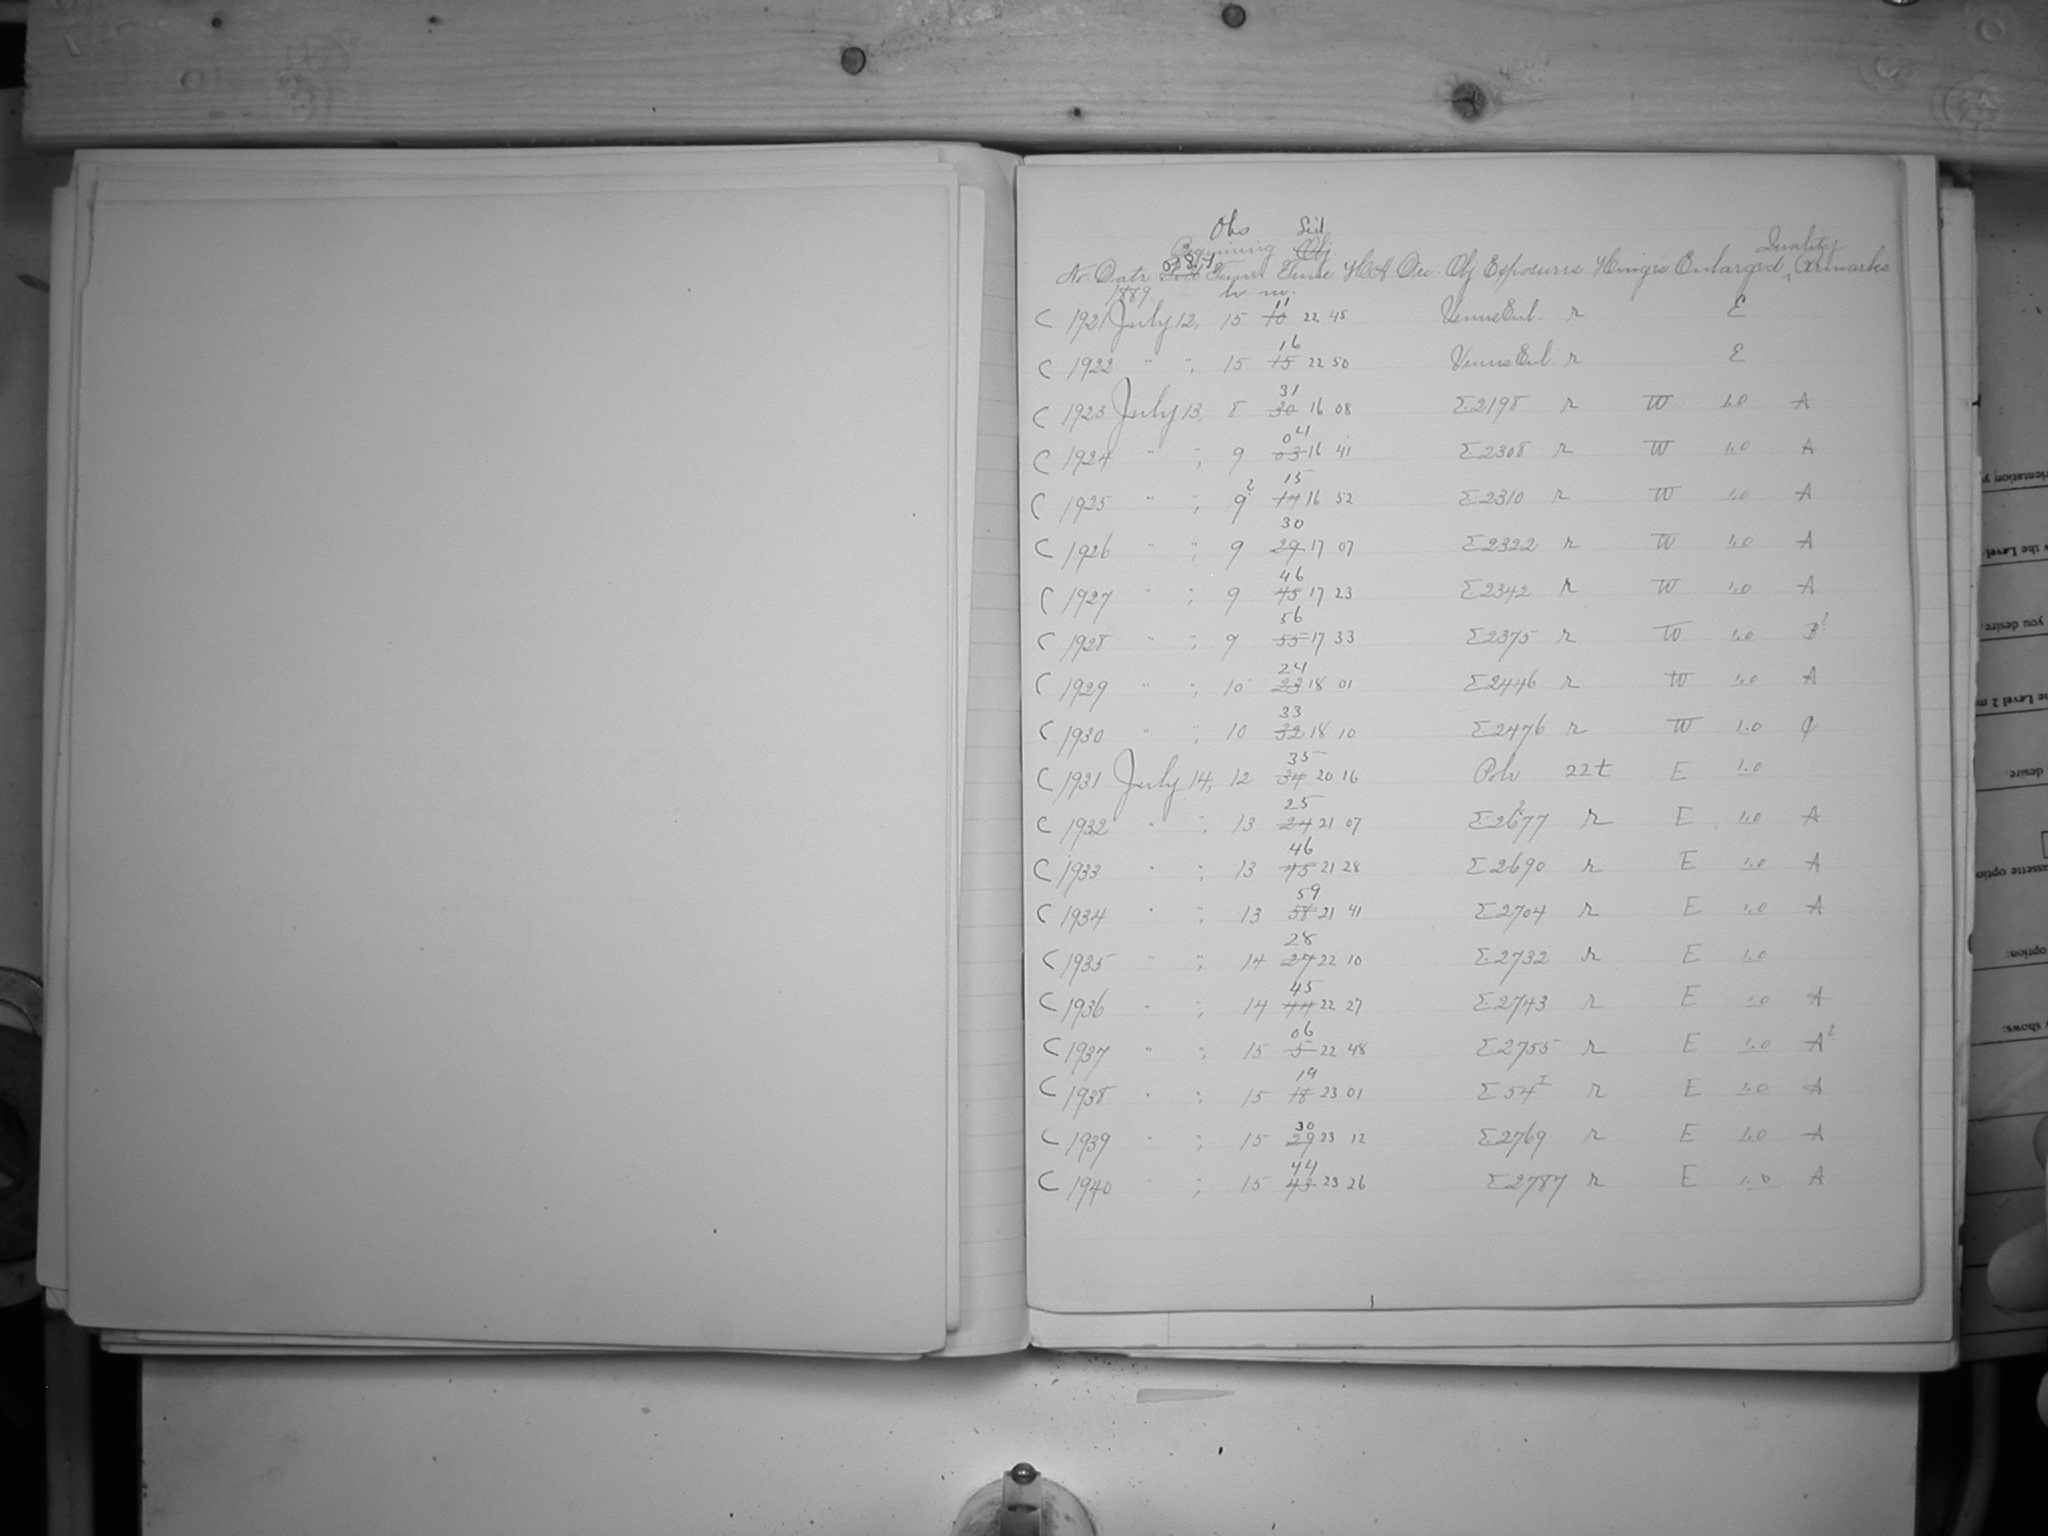 Obs Sid
Beginning Obj. Quality
No Date Time Time H.A Dec. Obj. Exposures Hinge Enlarged, Remarks
1889. h m.
C 1921 July 12, 15 10 11 22 45 Venus Enl. r E
C 1922 " " 15 15 16 22 50 Venus Enl. r E
C 1923 July 13, 8 30 31 16 08 Σ2198 r W 1.0 A
C 1924 " " 9 03 04 16 41 Σ2308 r W 1.0 A
C 1925 " " 9? 14 15 16 52 Σ2310 r W 1.0 A
C 1926 " " 9 29 30 17 07 Σ2322 r W 1.0 A
C 1927 " " 9 45 46 17 23 Σ2342 r W 1.0 A
C 1928 " " 9 55 56 17 33 Σ2375 r W 1.0 B?
C 1929 " " 10 23 24 18 01 Σ2446 r W 1.0 A
C 1930 " " 10 32 33 18 10 Σ2476 r W 1.0 C
C 1931 July 14, 12 34 35 20 16 22t E 1.0
C 1932 " " 13 24 25 21 07 Σ2677 r E 1.0 A
C 1933 " " 13 45 46 21 28 Σ2690 r E 1.0 A
C 1934 " " 13 58 59 21 41 Σ2704 r E 1.0 A
C 1935 " " 14 27 28 22 10 Σ2732 r E 1.0
C 1936 " " 14 44 45 22 27 Σ2743 r E 1.0 A
C 1937 " " 15 5 06 22 48 Σ2755 r E 1.0 A?
C 1938 " " 15 18 19 23 01 Σ54 I r E 1.0 A
C 1939 " " 15 29 30 23 12 Σ2769 r E 1.0 A
C 1940 " " 15 43 44 23 26 Σ2787 r E 1.0 A